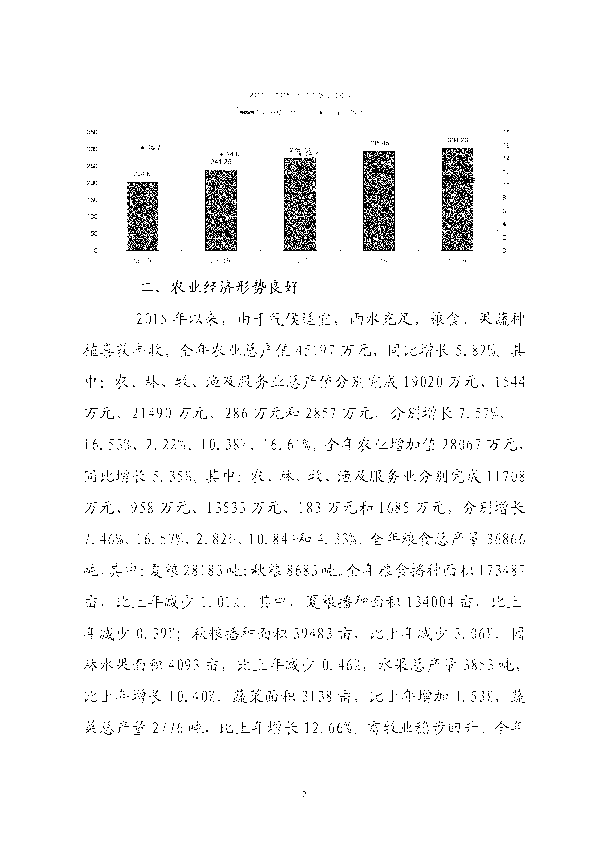 350
300
250
200
150
100
50
0
241.26
16
14
12
10
8
6
4
2
0
二、农业经济形势良好
2015 年以来，由于气候适宜，雨水充足，粮食、果蔬种
植喜获丰收，全年农业总产值 45197 万元，同比增长 5.89%，其
中：农、林、牧、渔及服务业总产值分别完成 19020 万元、1544
万元、21490 万元、286 万元和 2857 万元，分别增长 7.57%、
16.53%、2.22%、10.38%、16.61%。全年农业增加值 28067 万元，
同比增长 5.35%，其中：农、林、牧、渔及服务业分别完成 11708
万元、958 万元、13533 万元、183 万元和 1685 万元，分别增长
7.46%、16.57%、2.82%、10.84%和 4.33%。全年粮食总产量 36866
吨，其中：夏粮 28183 吨；秋粮 8683 吨。全年粮食播种面积 173487
亩，比上年减少 1.01%，其中，夏粮播种面积 134004 亩，比上
年减少 0.39%；秋粮播种面积 39483 亩，比上年减少 3.06%。园
林水果面积 4093 亩，比上年减少 0.46%，水果总产量 3853 吨，
比上年增长 10.40%。蔬菜面积 3138 亩，比上年增加 1.53%，蔬
菜总产量 2776 吨，比上年增长 12.66%。畜牧业稳步回升。全年
2